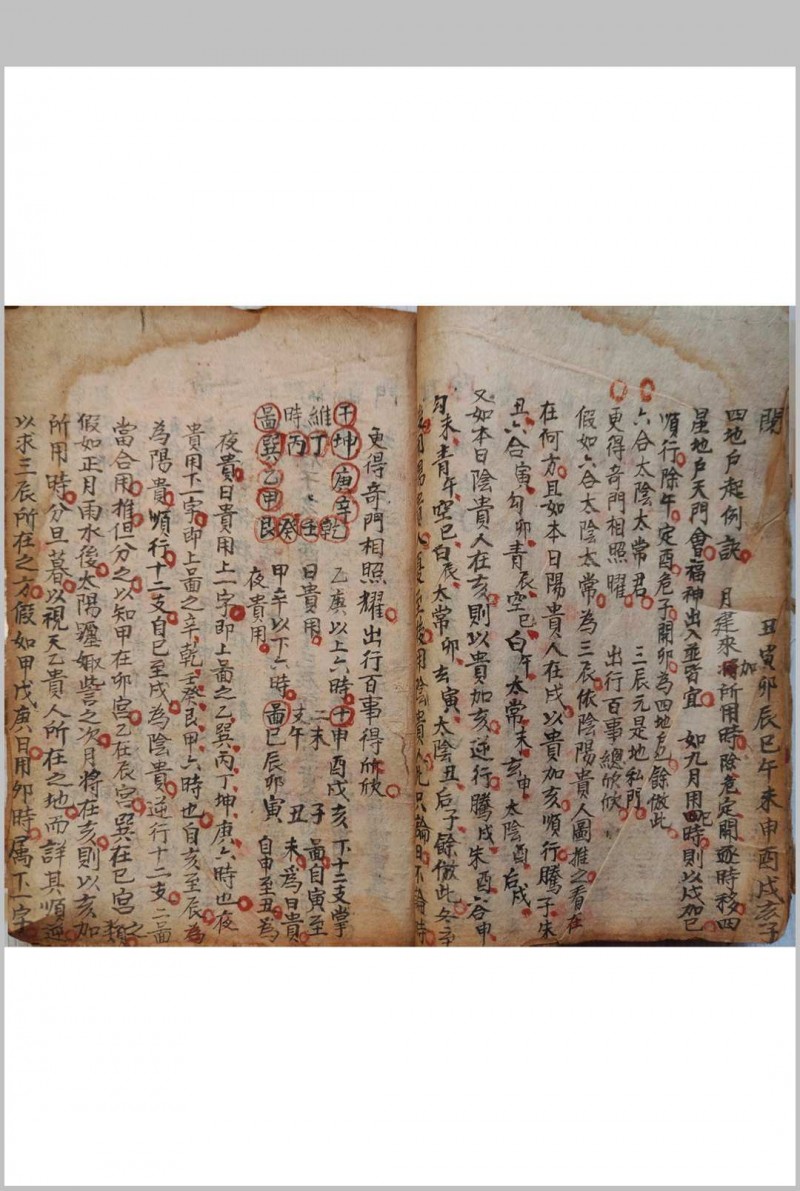 閉 丑寅卯辰巳午未申酉戌亥子
四地户起例訣 月建來加所用時除危定開逐時移四
星地户天門會福神出入並皆宜 如九月用巳時則以戌加巳
順行除午定酉危子開卯為四地户餘倣此
六合太陰太常君 三辰元是地私門
更得奇門相照曜 出行百事總欣欣
假如六合太陰太常為三辰依陰陽貴人圖推之看在
在何方且如本日陽貴人在戌以貴加亥順行騰子朱
丑六合寅勾卯青辰空巳白午太常未玄申太陰酉后戌
又如本日陰貴人在亥則以貴加亥逆行騰戌朱酉六合申
勾未青午空巳白辰太常卯玄寅太陰丑后子餘倣此冬至
更得奇門相照耀出行百事得欣欣
干坤庚辛 乙庚以上六時干申酉戌亥 下十二支掌
維丁 乾 日貴用 二未 子 圖自寅至
時丙 壬 甲辛以下六時 支午 丑 未為日貴
圖巽乙甲艮癸 夜貴用 圖巳辰卯寅 自申至丑為
夜貴日貴用上一字即上圖之乙巽丙丁坤庚六時也夜
貴用下一字即上圖之辛乾壬癸艮甲六時也自亥至辰為
為陽貴順行十二支自巳至戌為陰貴逆行十二支二圖
當合用推但分之以知甲在卯宮乙在辰宮巽在巳宮之類
假如正月雨水後太陽躔娵訾之次月將在亥則以亥加
所用時分旦暮以視天乙貴人所在之地而詳其順逆
以求三辰所在之方假如甲戊庚日用卯時属下一字